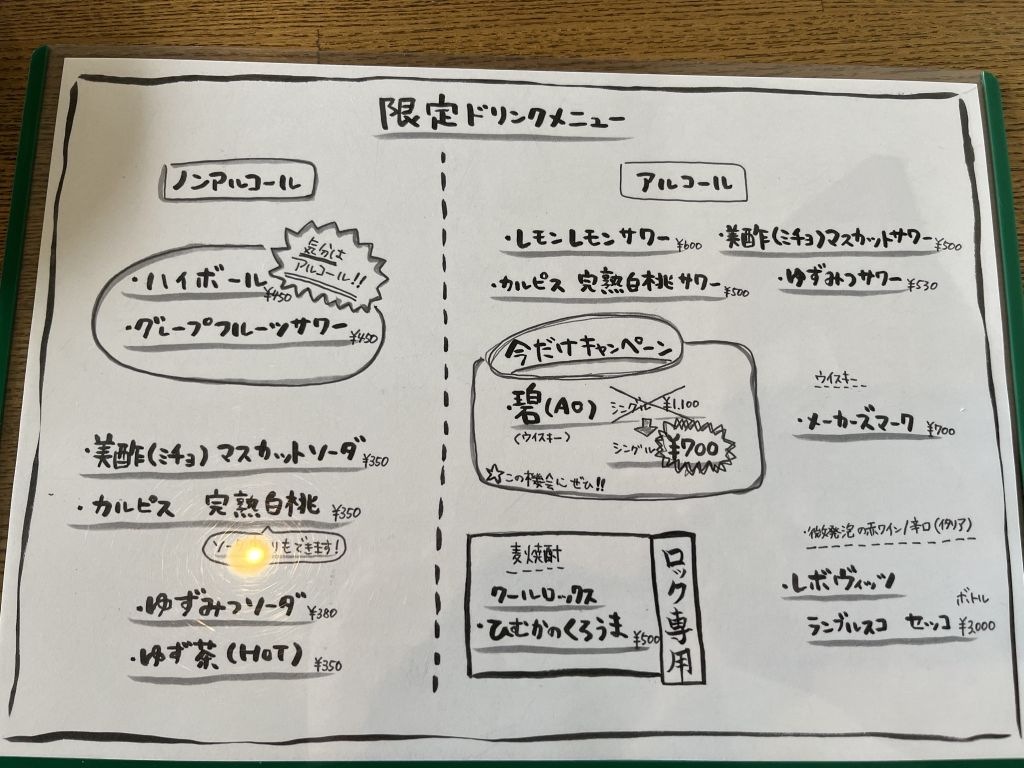 限定ドリンクメニュー
ノンアルコール
気分は
アルコール!!
・ハイボール ¥450
・グレープフルーツサワー ¥450
・美酢(ミチョ)マスカットソーダ ¥350
・カルピス 完熟白桃 ¥350
ソーダ りもできます!
・ゆずみつソーダ ¥380
・ゆず茶(HOT) ¥350
アルコール
・レモンレモンサワー ¥600
・美酢(ミチョ)マスカットサワー ¥500
・カルピス 完熟白桃サワー ¥500
・ゆずみつサワー ¥530
今だけキャンペーン
・碧(AO) シングル ¥1,100
(ウイスキー)
シングル ¥700
☆この機会にぜひ!!
ウイスキー
・メーカーズマーク ¥700
麦焼酎
クールロックス
・ひむかのくろうま ¥500
ロック専用
・微発泡の赤ワイン/辛口(イタリア)
・レボヴィッツ
ボトル
ランブルスコ セッコ ¥3,000